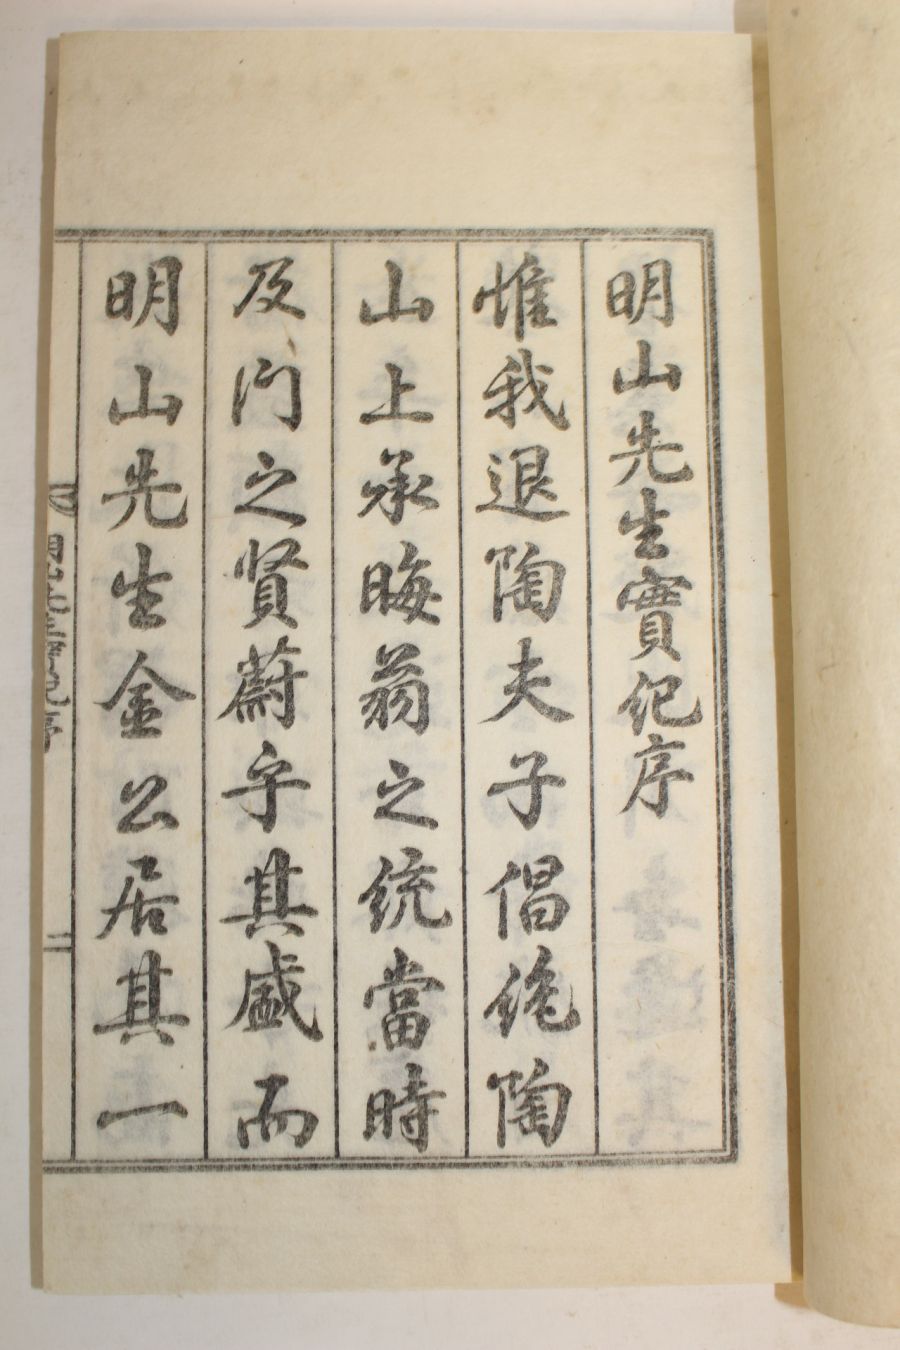 明山先生實紀序
惟我退陶夫子倡絶陶
山上承晦翁之統當時
及门之賢蔚乎其盛而
明山先生金公居其一